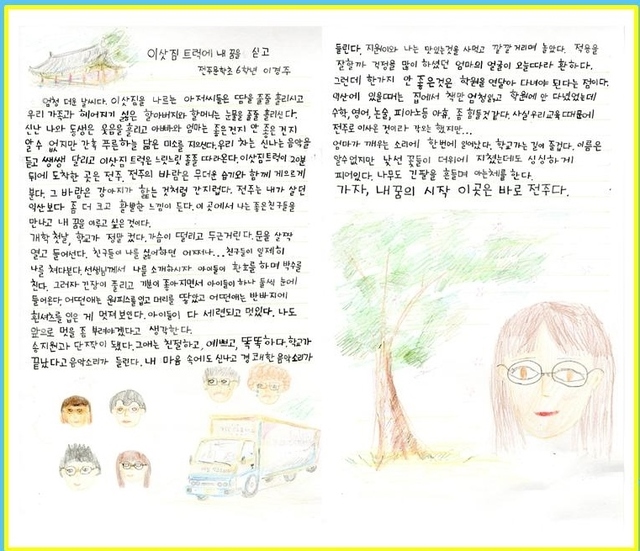 이삿짐 트럭에 내 꿈을 싣고
전주용학초 6학년 이경주
엄청 더운 날씨다. 이삿짐을 나르는 아저씨들은 땀을 줄줄 흘리시고
우리 가족과 헤어지기 싫은 할아버지와 할머니는 눈물을 줄줄 흘리신다.
신난 나와 동생은 웃음을 흘리고 아빠와 엄마는 좋은건지 안 좋은 건지
알 수 없지만 가끔 푸른하늘 닮은 미소를 지으신다. 우리 차는 신나는 음악을
듣고 쌩쌩 달리고 이삿짐 트럭은 느릿느릿 줄줄 따라온다. 이삿짐트럭이 20분
뒤에 도착한 곳은 전주. 전주의 바람은 무더운 습기와 함께 게으르게
분다. 그 바람은 강아지가 핥는 것처럼 간지럽다. 전주는 내가 살던
익산보다 좀 더 크고 활발한 느낌이 든다. 이 곳에서 나는 좋은친구들을
만나고 내 꿈을 이루고 싶은 것이다.
개학 첫날, 학교가 정말 컸다. 가슴이 떨리고 두근거린다. 문을 살짝
열고 들어선다. 친구들이 나를 싫어하면 어쩌나... 친구들이 일제히
나를 쳐다본다. 선생님께서 나를 소개하시자 아이들이 환호를 하며 박수를
친다. 그러자 긴장이 풀리고 기분이 좋아지면서 아이들이 하나 둘씩 눈에
들어온다. 어떤애는 원피스를 입고 머리를 땋았고 어떤애는 반바지에
흰셔츠를 입은 게 멋져보인다. 아이들이 다 세련되고 멋있다. 나도
앞으로 멋을 좀 부려야겠다고 생각한다.
송지원과 단짝이 됐다. 그애는 친절하고, 예쁘고, 똑똑하다. 학교가
끝났다고 음악소리가 들린다. 내 마음 속에도 신나고 경쾌한 음악소리가
들린다. 지원이와 나는 맛있는것을 사먹고 깔깔거리며 놀았다. 적응을
잘할까 걱정을 많이 하셨던 엄마의 얼굴이 오늘따라 환하다.
그런데 한가지 안 좋은것은 학원을 연달아 다녀야 된다는 점이다.
익산에 있을때는 집에서 책만 엄청읽고 학원에 안 다녔었는데
수학, 영어, 논술, 피아노등 아휴, 좀 힘들것같다. 사실우리교육때문에
전주로 이사온 것이라 각오는 했지만...
엄마가 깨우는 소리에 한번에 일어났다. 학교가는 길이 즐겁다. 이름은
알수없지만 낯선 꽃들이 더위에 지쳤는데도 싱싱하게
피어있다. 나무도 긴팔을 흔들며 아는체를 한다.
가자, 내 꿈의 시작 이곳은 바로 전주다.